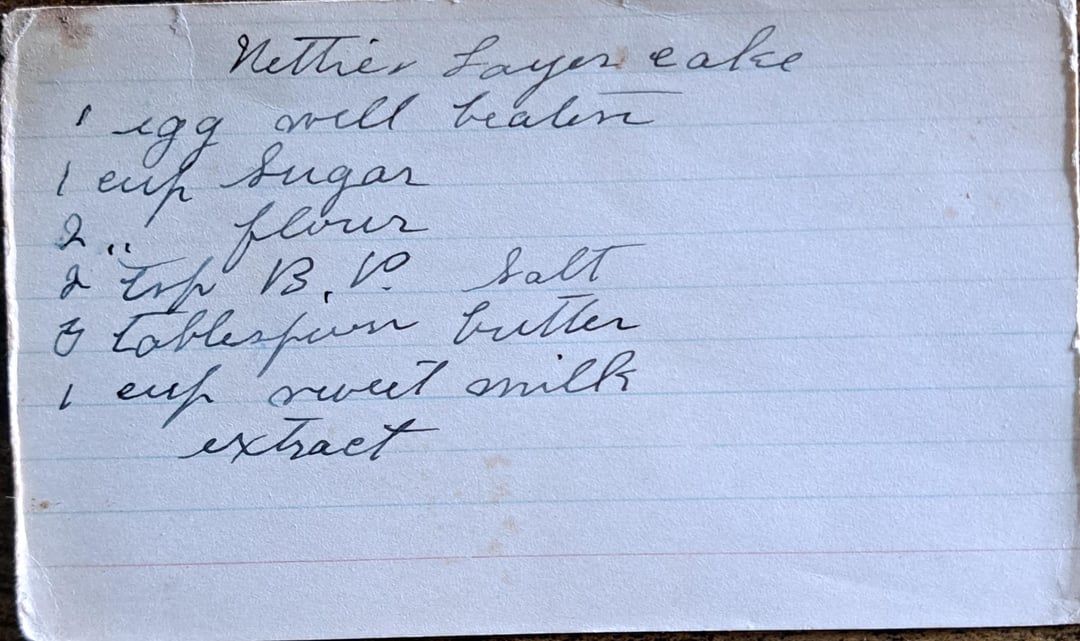 Netties Layer cake
1 egg well beaten
1 cup Sugar
2 " flour
2 tsp B.P. Salt
3 tablespoon butter
1 cup sweet milk
extract